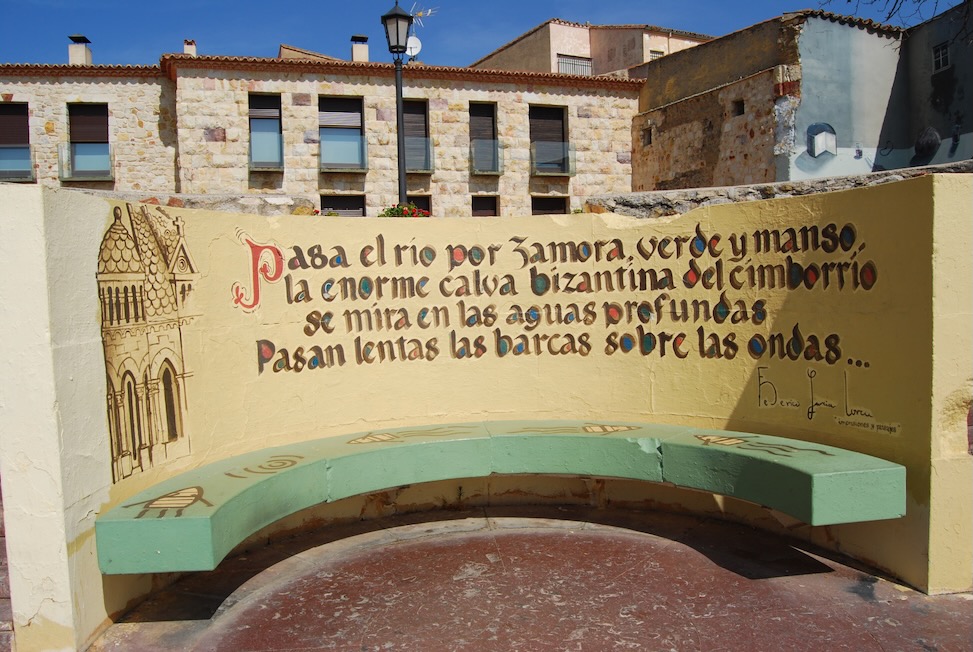 Pasa el rio por Zamora, verde y manso,
la enorme calva bizantina del cimborrio
se mira en las aguas profundas
Pasan lentas las barcas sobre las ondas...
Federico García Lorca
"impresiones y paisajes"